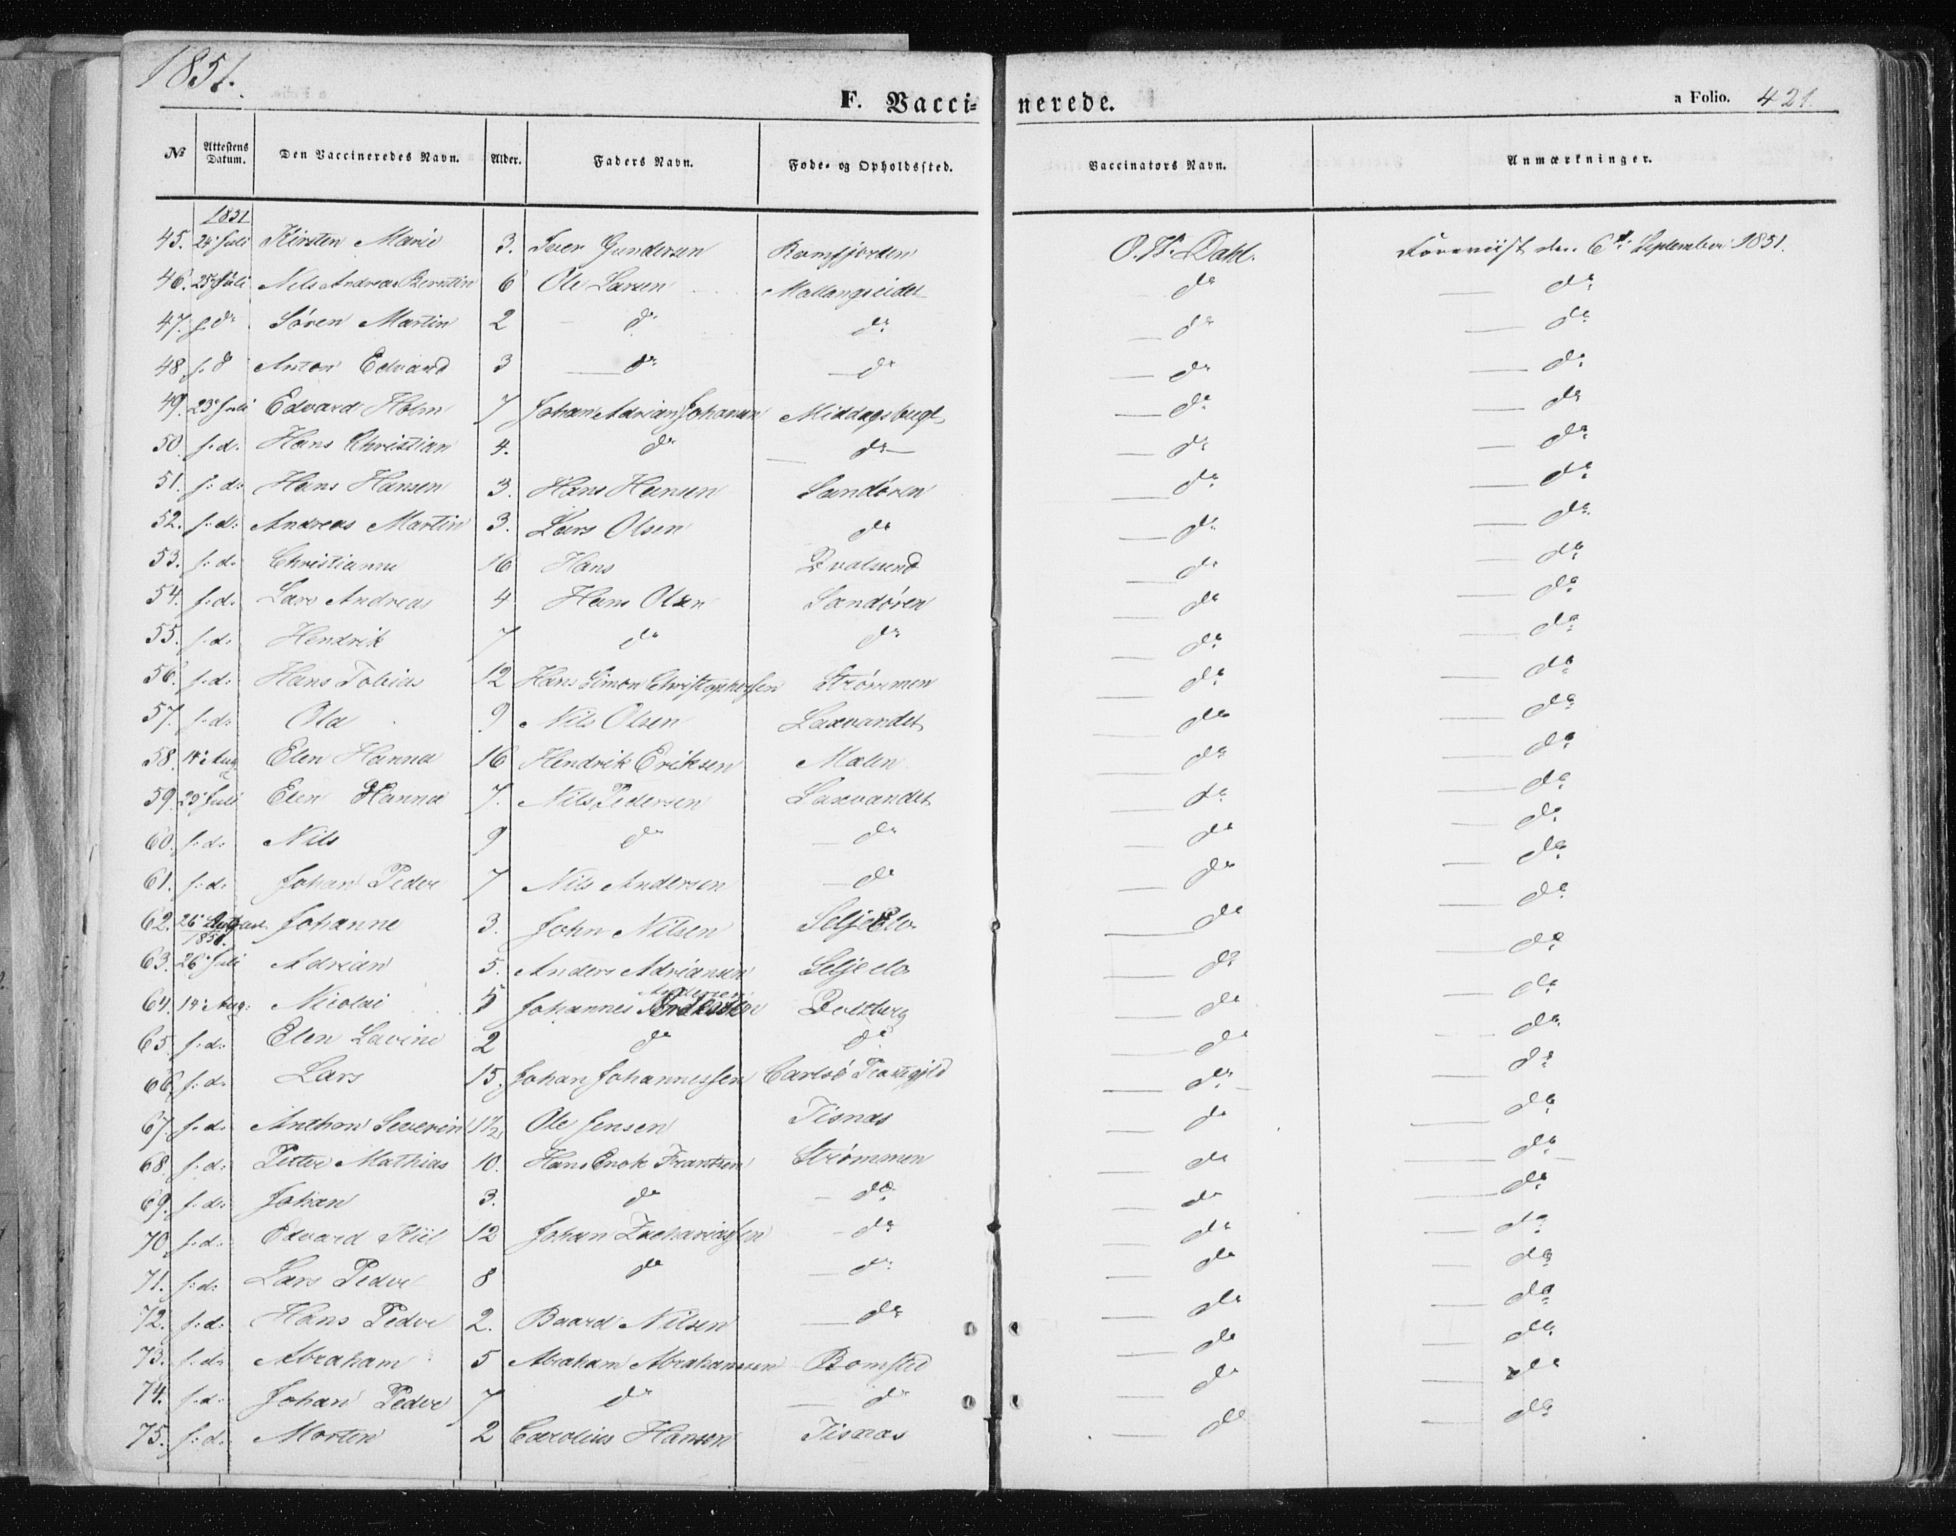 1851.
F. Vacci=nerede.
a Folio. 421
No Attestens Datum. Den Vaccineredes Navn. Alder. Faders Navn. Føde- og Opholdssted. Vaccinators Navn. Anmærkninger.
1851
45. 24 Juli Kirsten Marie 3. Iver Gundersen Ramfjorden O. W. Dahl. Foreviist den 6te September 1851.
46. 25 Juli Nils Andreas 6 Ole Larsen Mallangseidet do do
47. s. d. Søren Martin 2 do do do do
48 s. d Anton Edvard 3 do do do do
49. 23 Juli Edvard Holm 7 Johan Adrian Johansen Middagsbugt do do
50. s. d. Hans Christian 4. do do do do
51. s. d. Hans Hansen 3. Hans Hansen Sandøren do do
52. s. d. Andreas Martin 3. Lars Olsen do do do
53. s. d. Christianne 16 Hans Qvalsund do do
54. s. d. Lars Andreas 4 Hans Olsen Sandøren do do
55. s. d. Hendrik 7 do do do do
56. s. d. Hans Tobias 12 Hans Simon Christophersen Strømmen do do
57. s. d. Ola 9 Nils Olsen Laxvandet do do
58. 14 Aug Elen Hanna 16 Hendrik Eriksen Malen do do
59. 25 Juli Elen Hanna 7. Nils Pedersen Laxvandet do do
60. s. d. Nils 9 do do do do
61. s. d. Johan Peder 7 Nils Andersen do do do
62. 26 August 1851. Johanne 3. John Nilsen Seljeelv do do
63. 26 Juli Adrian 5. Anders Adriansen Seljeelv do do
64. 14 Aug: Nicolai 5 Johannes Andersen Balsberg do do
65. s. d. Elen Lavine 2 do do do do
66. s. d. Lars 15. Johan Johannessen Carlsö Præstegjeld do do
67. s. d. Anthon Severin 1 1/2 Ole Jensen Tisnæs do do
68. s. d. Petter Mathias 10. Hans Enok Frantzen Strømmen do do
69. s. d. Johan 3. do do do do
70. s. d. Edvard Kiil 12 Johan Zachariassen do do do
71. s. d. Lars Peder 8 do do do do
72. s. d. Hans Peder 2. Baard Nilsen do do do
73. s. d. Abraham 5 Abraham Abrahamsen Bomstad do do
74. s. d. Johan Peder 7 do do do do
75. s. d. Morten 2 Carolius Hanson Tisnæs do do